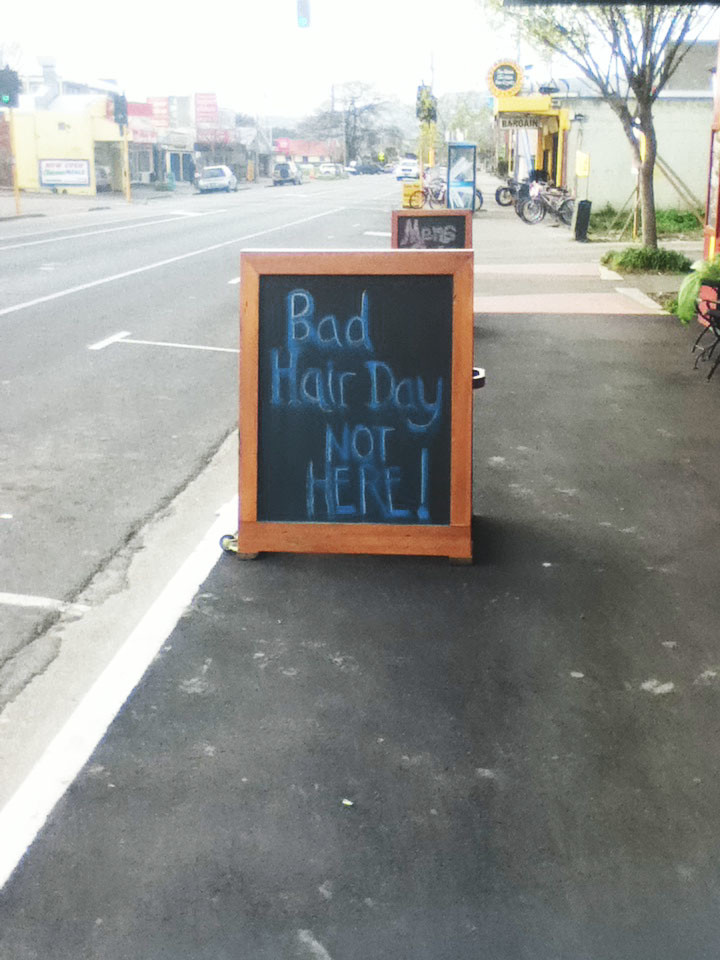 Bad
Hair Day
NOT
HERE!
Mens
BARGAIN